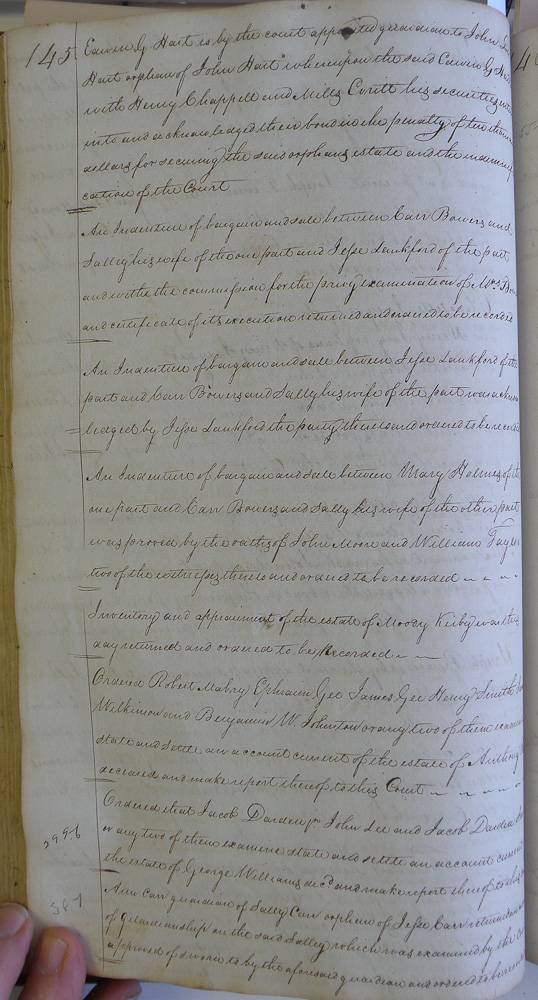 145
Edwin G Hart is by the court appointed guardian to John
Hart orphan of John Hart whereupon the said Edwin G
with Henry Chappell and Mills his securities
into and acknowledged their bond in the penalty of two
dollars for securing the said orphans estate and the
cation of the Court
An Indenture of bargain and sale between Carr Bowers and
Sally his wife of the one part and Jesse Lankford of the part
and with the commission for the privy examination of Mrs
and certificate of its execution returned and ordered to be recorded
An Indenture of bargain and sale between Jesse Lankford of the
part and Carr Bowers and Sally his wife of the part was
ledged by Jesse Lankford the party thereto and ordered to be recorded
An Indenture of bargain and sale between Mary Holmes of the
one part and Carr Bowers and Sally his wife of the other part
was proved by the oaths of John Moore and William
two of the witnesses thereto and ordered to be recorded
Inventory and appraisment of the estate of Moody Kirby was this
day returned and ordered to be Recorded
Ordered Robert Mabry Ephraim Gee James Gee Henry Smith
Wilkinson and Benjamin W Johnston or any two of them
state and settle an account current of the estate of Anthony
deceased and make report thereof to this Court
Ordered that Jacob Darden jr John Lee and Jacob Darden
or any two of them examine state and settle an account current
the estate of George Williams decd and make report thereof to this
Ann Carr guardian of Sally Carr orphan of Jesse Carr returned
of guardianship on the said Sally which was examined by the
approved of sworn to by the aforesaid guardian and ordered to be